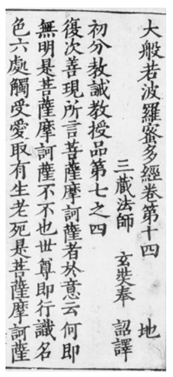 大般若波羅蜜多經卷第十四 地
三藏法師 玄奘奉 詔譯
初分教誡教授品第七之四
復次善現所言菩薩摩訶薩者於意云何即
無明是菩薩摩訶薩不不也世尊即行識名
色六處觸受愛取有生老死是菩薩摩訶薩